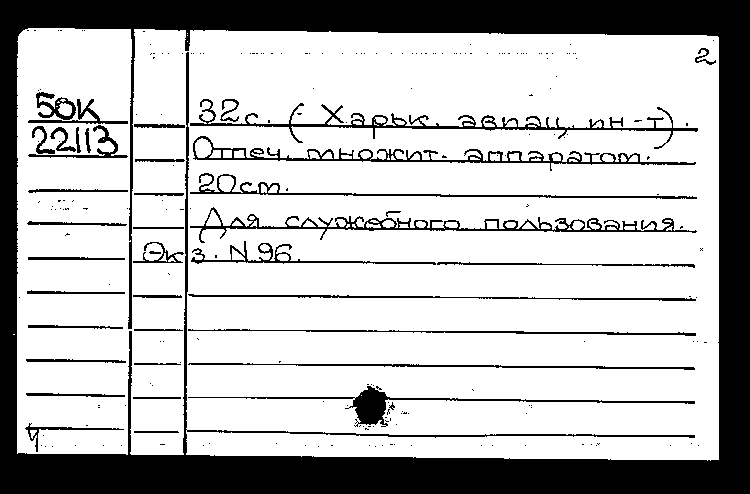 2
50К 32с. (Харьк. авиац. ин-т).
22113 Отпеч. множит. аппаратом.
20см.
Для служебного пользования.
Экз. N 96.
Ч